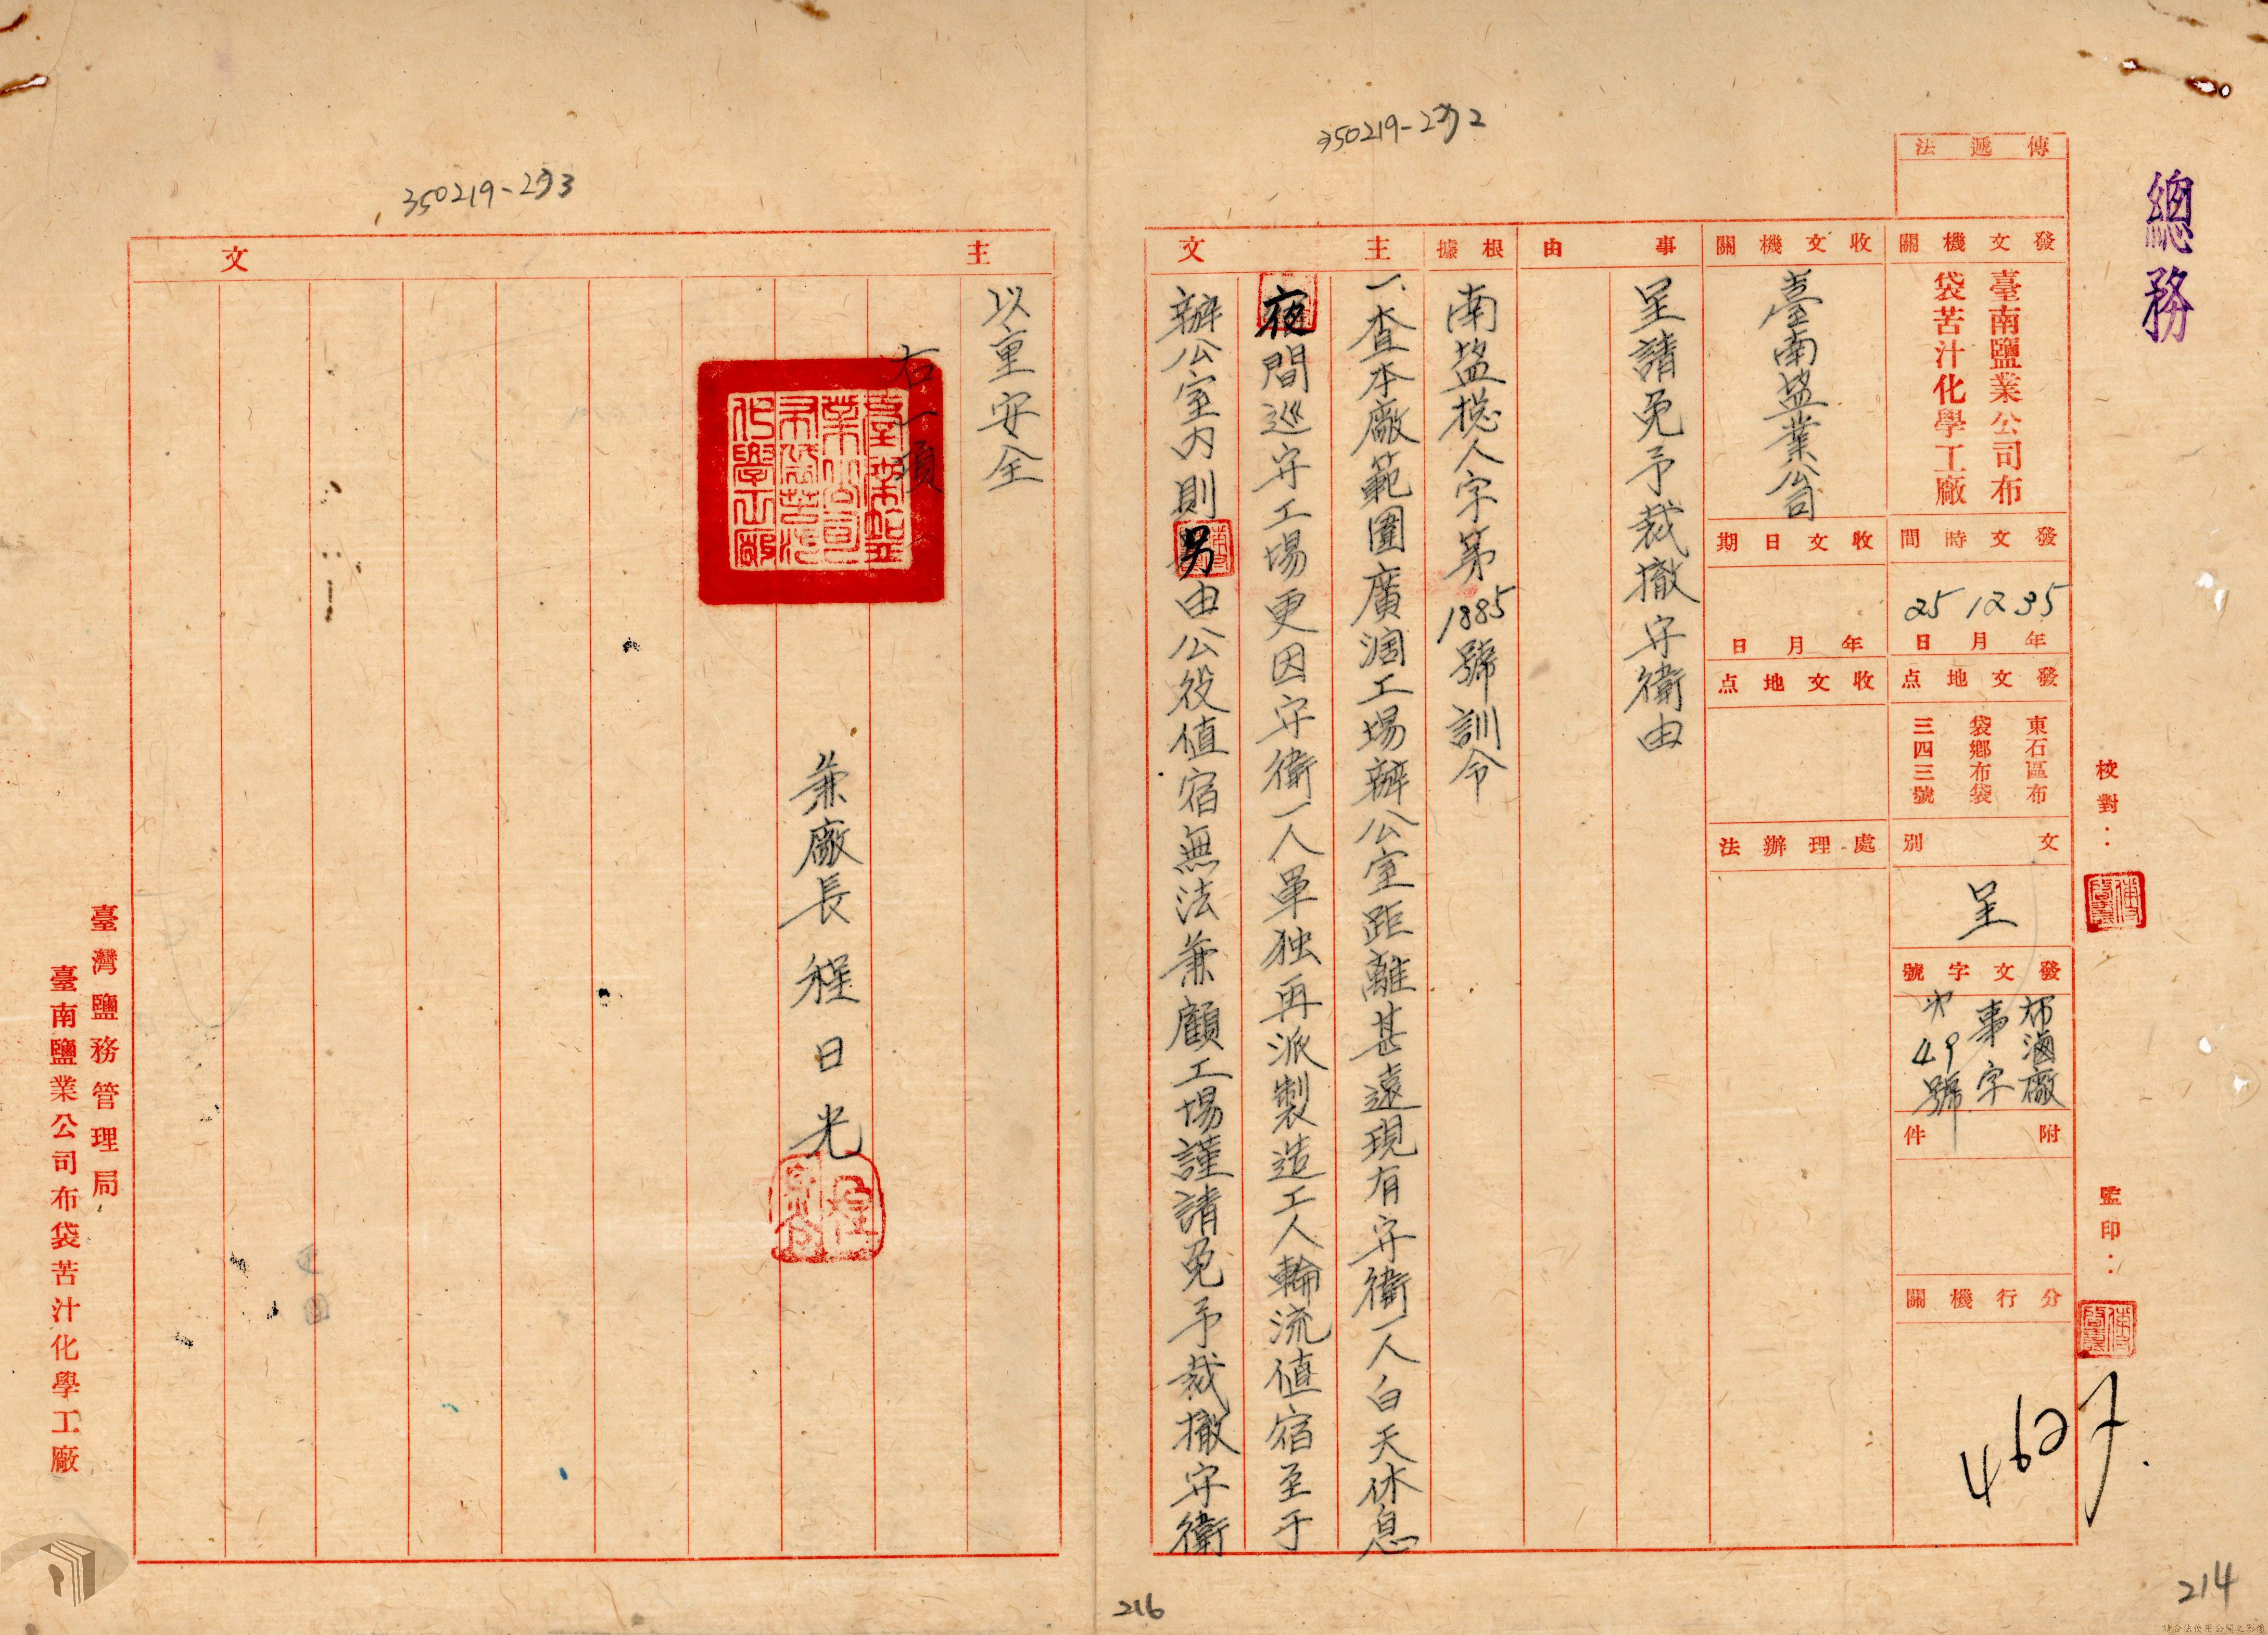 總務
350219-2332
傳遞法
發文機關
臺南鹽業公司布
袋苦汁化學工廠
發文時間
35 12 25
年月日
發文地点
東石區布
袋鄉布袋
三四三號
文別
呈
發文字號
布滷廠
事字
第49號
附件
分行機關
校對：
監印：
4627
收文機關
臺南盐業公司
收文日期
年月日
收文地点
處理辦法
事由
呈請免予裁撤守衛由
根據
南盐總人字第1885號訓令
主文
一、查本廠範圍廣濶工場辦公室距離甚遠現有守衛一人白天休息
夜間巡守工場更因守衛一人單独再派製造工人輪流值宿至于
辦公室內則另由公役值宿無法兼顧工場謹請免予裁撤守衛
214
216
350219-233
主文
以重安全
右一項
臺南鹽業公司布袋苦汁化學工廠
兼廠長程日光
臺灣鹽務管理局
臺南鹽業公司布袋苦汁化學工廠
請合法使用公開之影像